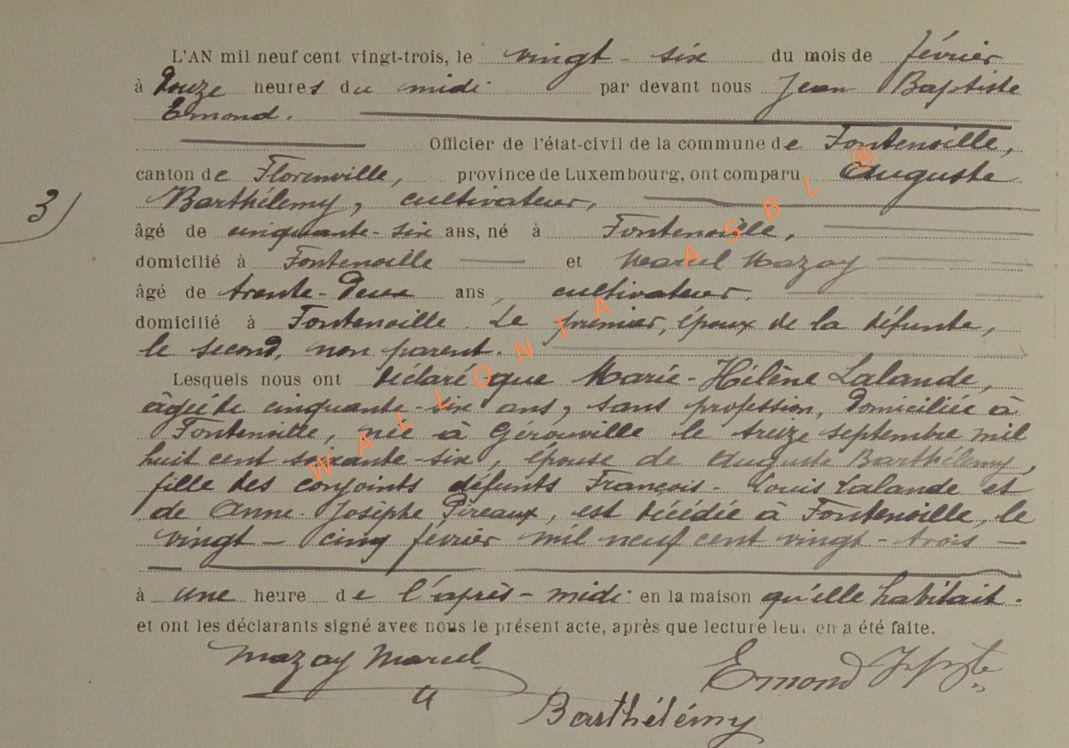 L'AN mil neuf cent vingt-trois, le vingt-six du mois de février
à Douze heures du midi par devant nous Jean Baptiste
Emond.
Officier de l'état-civil de la commune de Fontenoille,
canton de Florenville, province de Luxembourg, ont comparu Auguste
3) Barthélemy, cultivateur,
âgé de cinquante-six ans, né à Fontenoille,
domicilié à Fontenoille et Marcel Mazay
âgé de trente-deux ans, cultivateur.
domicilié à Fontenoille. Le premier, époux de la défunte,
le second, non parent.
Lesquels nous ont déclaré que Marie-Hélène Lalande,
âgée de cinquante-six ans, sans profession, domiciliée à
Fontenoille, née à Gérouville le treize septembre mil
huit cent soixante-six, épouse de Auguste Barthélemy,
fille des conjoints défunts François-Louis Lalande et
de Anne-Josèphe Pireaux, est décédée à Fontenoille, le
vingt-cinq février mil neuf cent vingt-trois
à une heure de l'après-midi en la maison qu'elle habitait.
et ont les déclarants signé avec nous le présent acte, après que lecture leur en a été faite.
Mazay Marcel
Emond
Barthélémy
WALLONIA ASBL ®